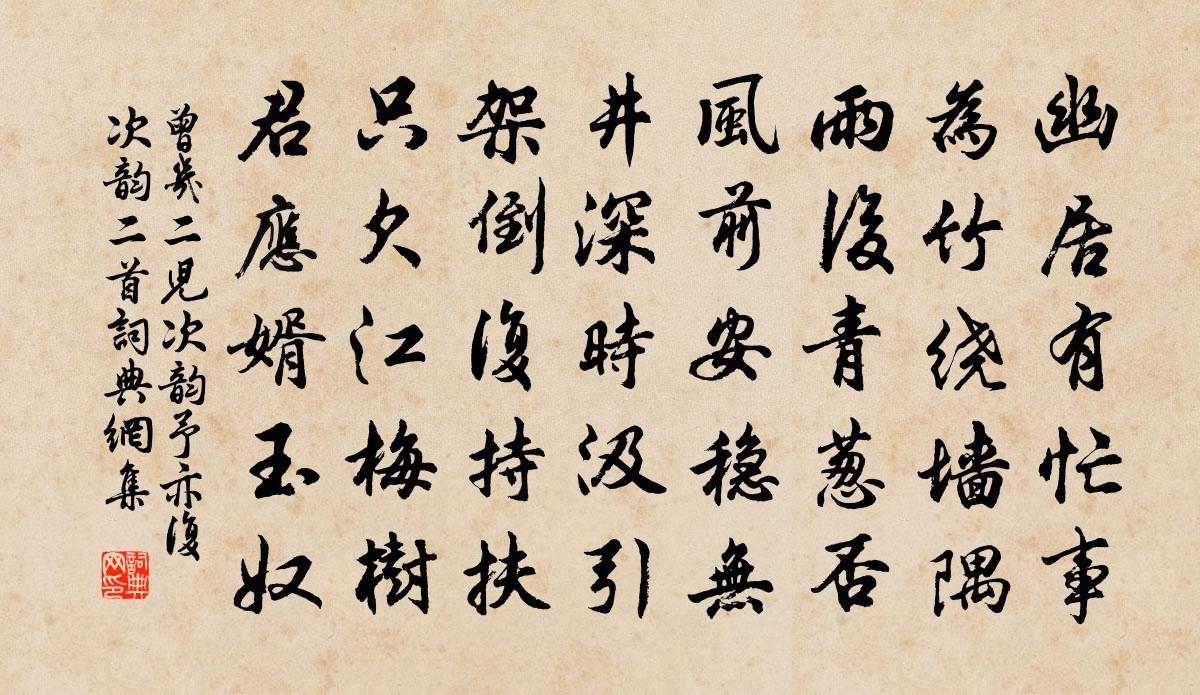 幽居有忙事
為竹绕墙隅
雨後青葱否
風前安稳無
井深時汲引
架倒復持扶
只欠江梅樹
君應婿玉奴
曾幾二児次韵予亦復
次韵二首詞典網集
詞典网印